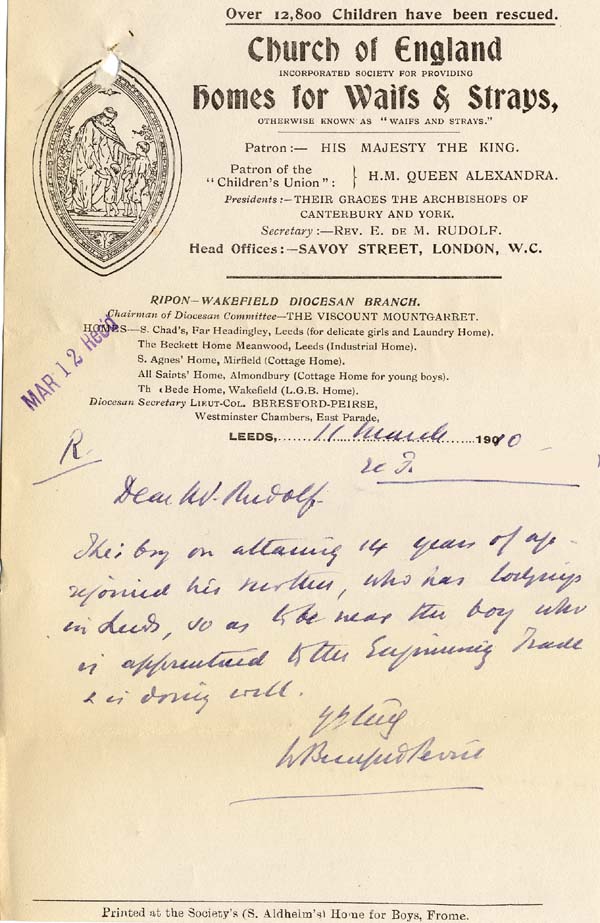 Over 12,800 Children have been rescued.
Church of England
INCORPORATED SOCIETY FOR PROVIDING
Homes for Waifs & Strays,
OTHERWISE KNOWN AS "WAIFS AND STRAYS."
Patron:— HIS MAJESTY THE KING.
Patron of the "Children's Union": } H.M. QUEEN ALEXANDRA.
Presidents:—THEIR GRACES THE ARCHBISHOPS OF
CANTERBURY AND YORK.
Secretary:—REV. E. DE M. RUDOLF.
Head Offices:—SAVOY STREET, LONDON, W.C.
RIPON-WAKEFIELD DIOCESAN BRANCH.
Chairman of Diocesan Committee—THE VISCOUNT MOUNTGARRET.
HOMES—S. Chad's, Far Headingley, Leeds (for delicate girls and Laundry Home).
The Beckett Home Meanwood, Leeds (Industrial Home).
S. Agnes' Home, Mirfield (Cottage Home).
All Saints' Home, Almondbury (Cottage Home for young boys).
Th Bede Home, Wakefield (L.G.B. Home).
Diocesan Secretary LIEUT-COL. BERESFORD-PEIRSE,
Westminster Chambers, East Parade,
MAR 12 Recd
LEEDS, 11 March 1910
R.
re F.
Dear Mr. Rudolf
This boy on attaining 14 years of age
rejoined his mother, who has lodgings
in Leeds, so as to be near the boy who
is apprenticed to the Engineering Trade
& is doing well.
W Beresford Peirse
Printed at the Society's (S. Aldhelm's) Home for Boys, Frome.